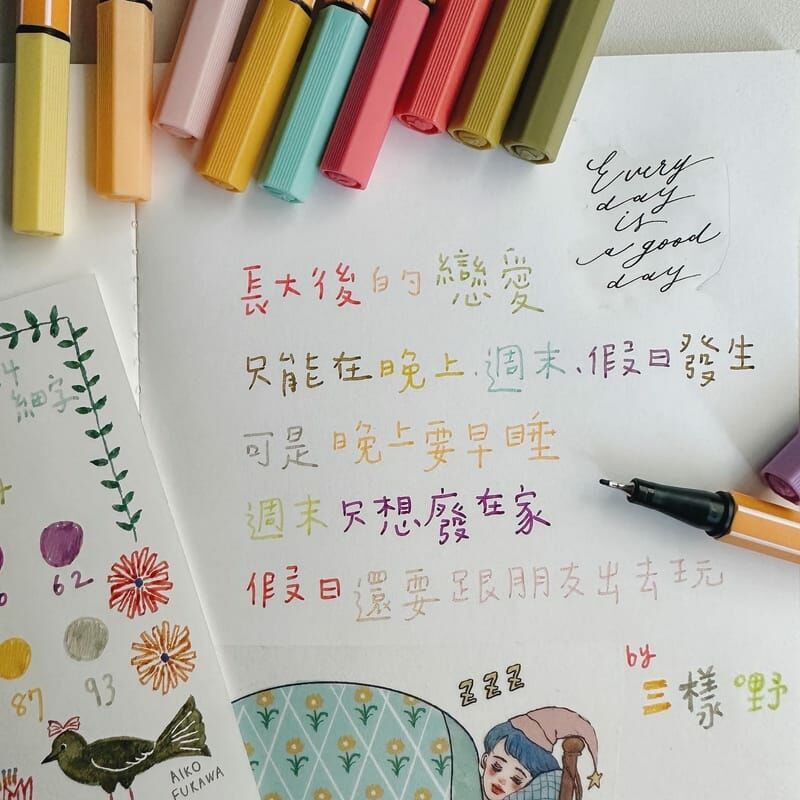 Every
day
is
a good
day
長大後的戀愛
只能在晚上、週末、假日發生
可是晚上要早睡
週末只想廢在家
假日還要跟朋友出去玩
by
三樣哩野
細字
62
87
93
AIKO
FUKAWA
ZZZ